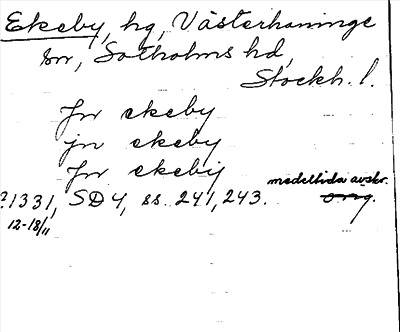 Ekeby, hg, Västerhaninge
sn, Sotholms hd,
Stockh. l.
jn ekeby
jn ekeby
jn ekebij
medeltida avskr.
?1331, SD 4, ss. 241, 243. orig.
12-18/11